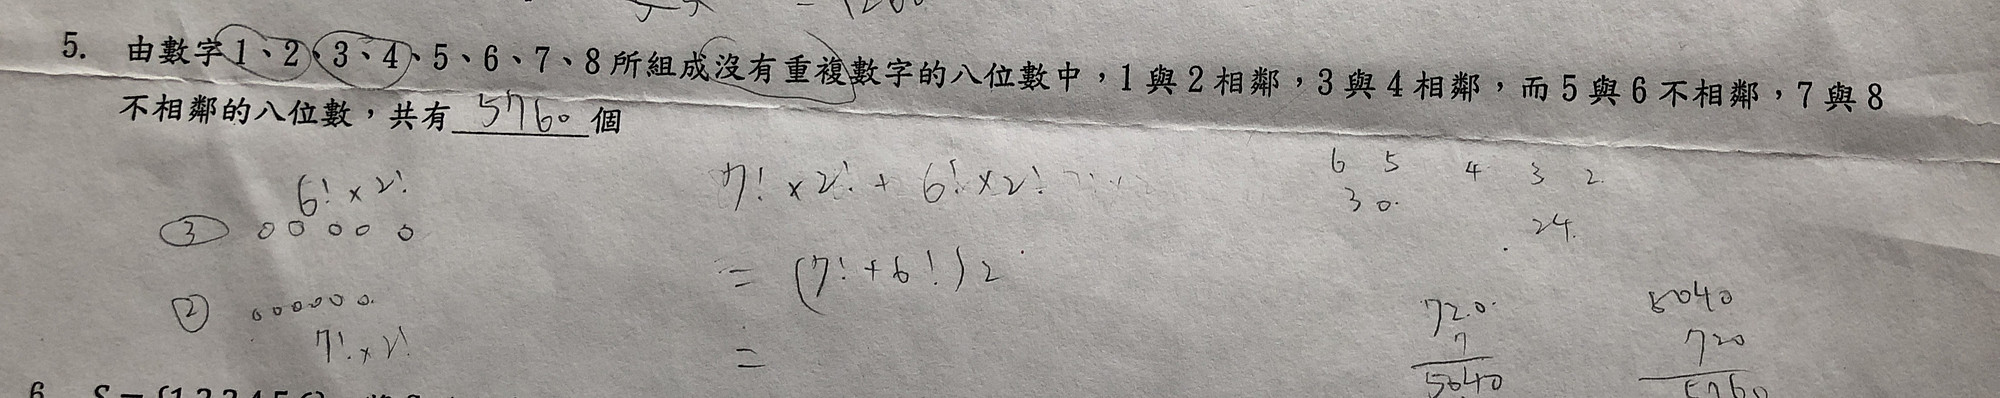 5. 由數字1、2、3、4、5、6、7、8所組成沒有重複數字的八位數中，1與2相鄰，3與4相鄰，而5與6不相鄰，7與8
不相鄰的八位數，共有 5760 個
6! × 2!
③ 0 0 0 0 0
② 0 0 0 0 0 0
7! × 2!
7! × 2! + 6! × 2!
= (7! + 6!) 2
=
6 5 4 3 2
30
24
720
7
5040
5040
720
5760